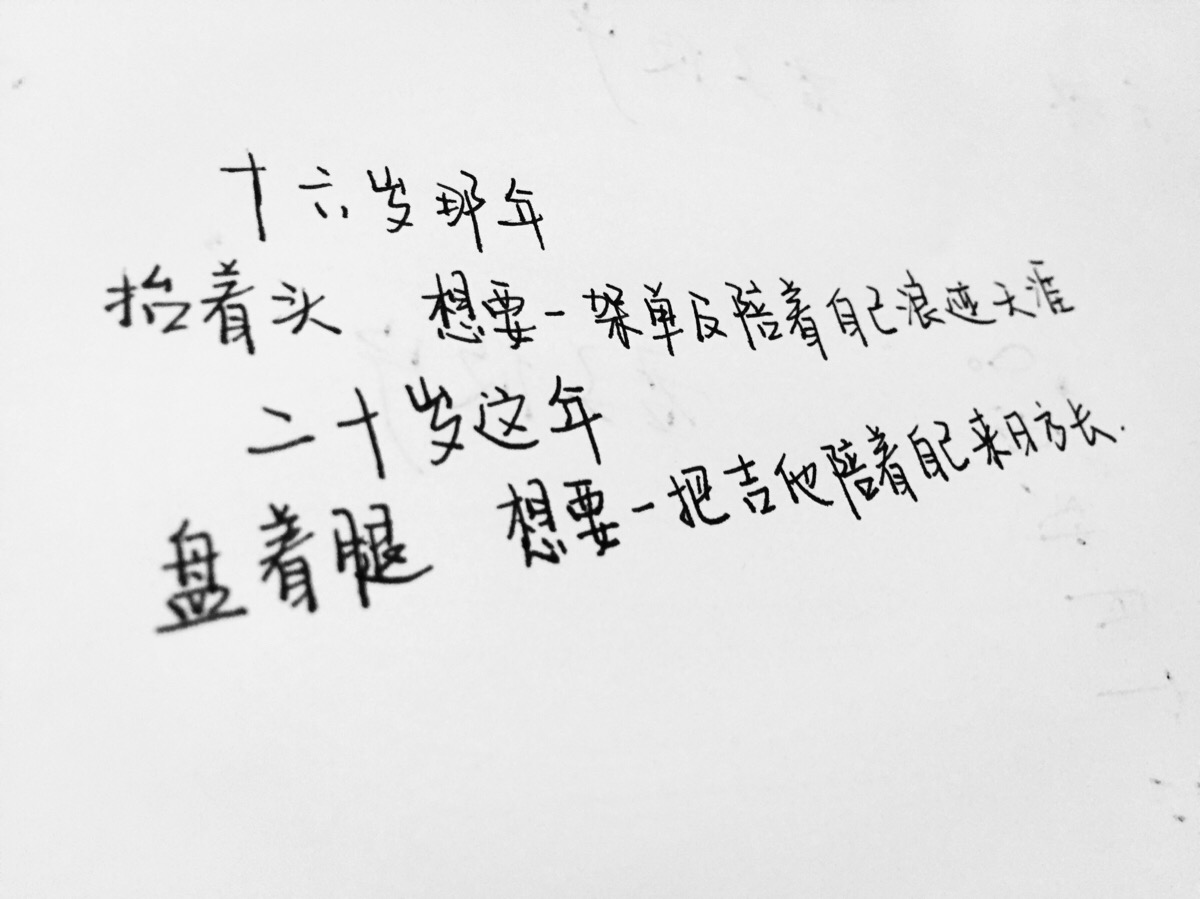 十六岁那年
抬着头 想要一架单反陪着自己浪迹天涯
二十岁这年
盘着腿 想要一把吉他陪着自己来日方长.